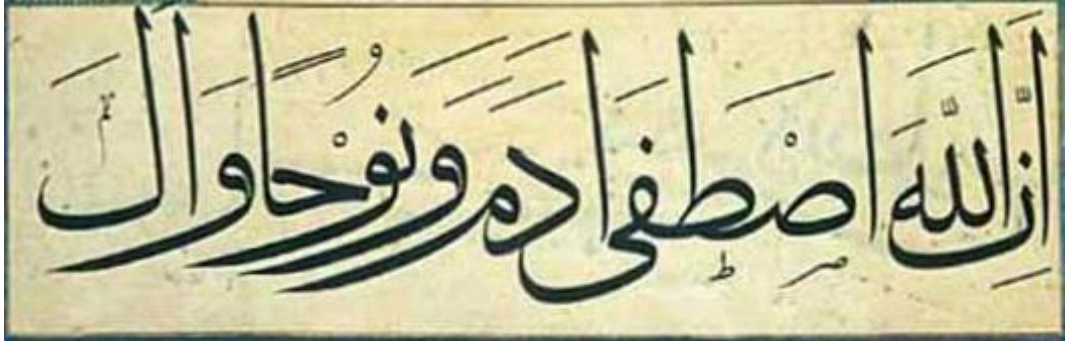 اِنَّ اللّٰهَ اصْطَفَى اٰدَمَ وَنُوْحًا وَاٰلَ